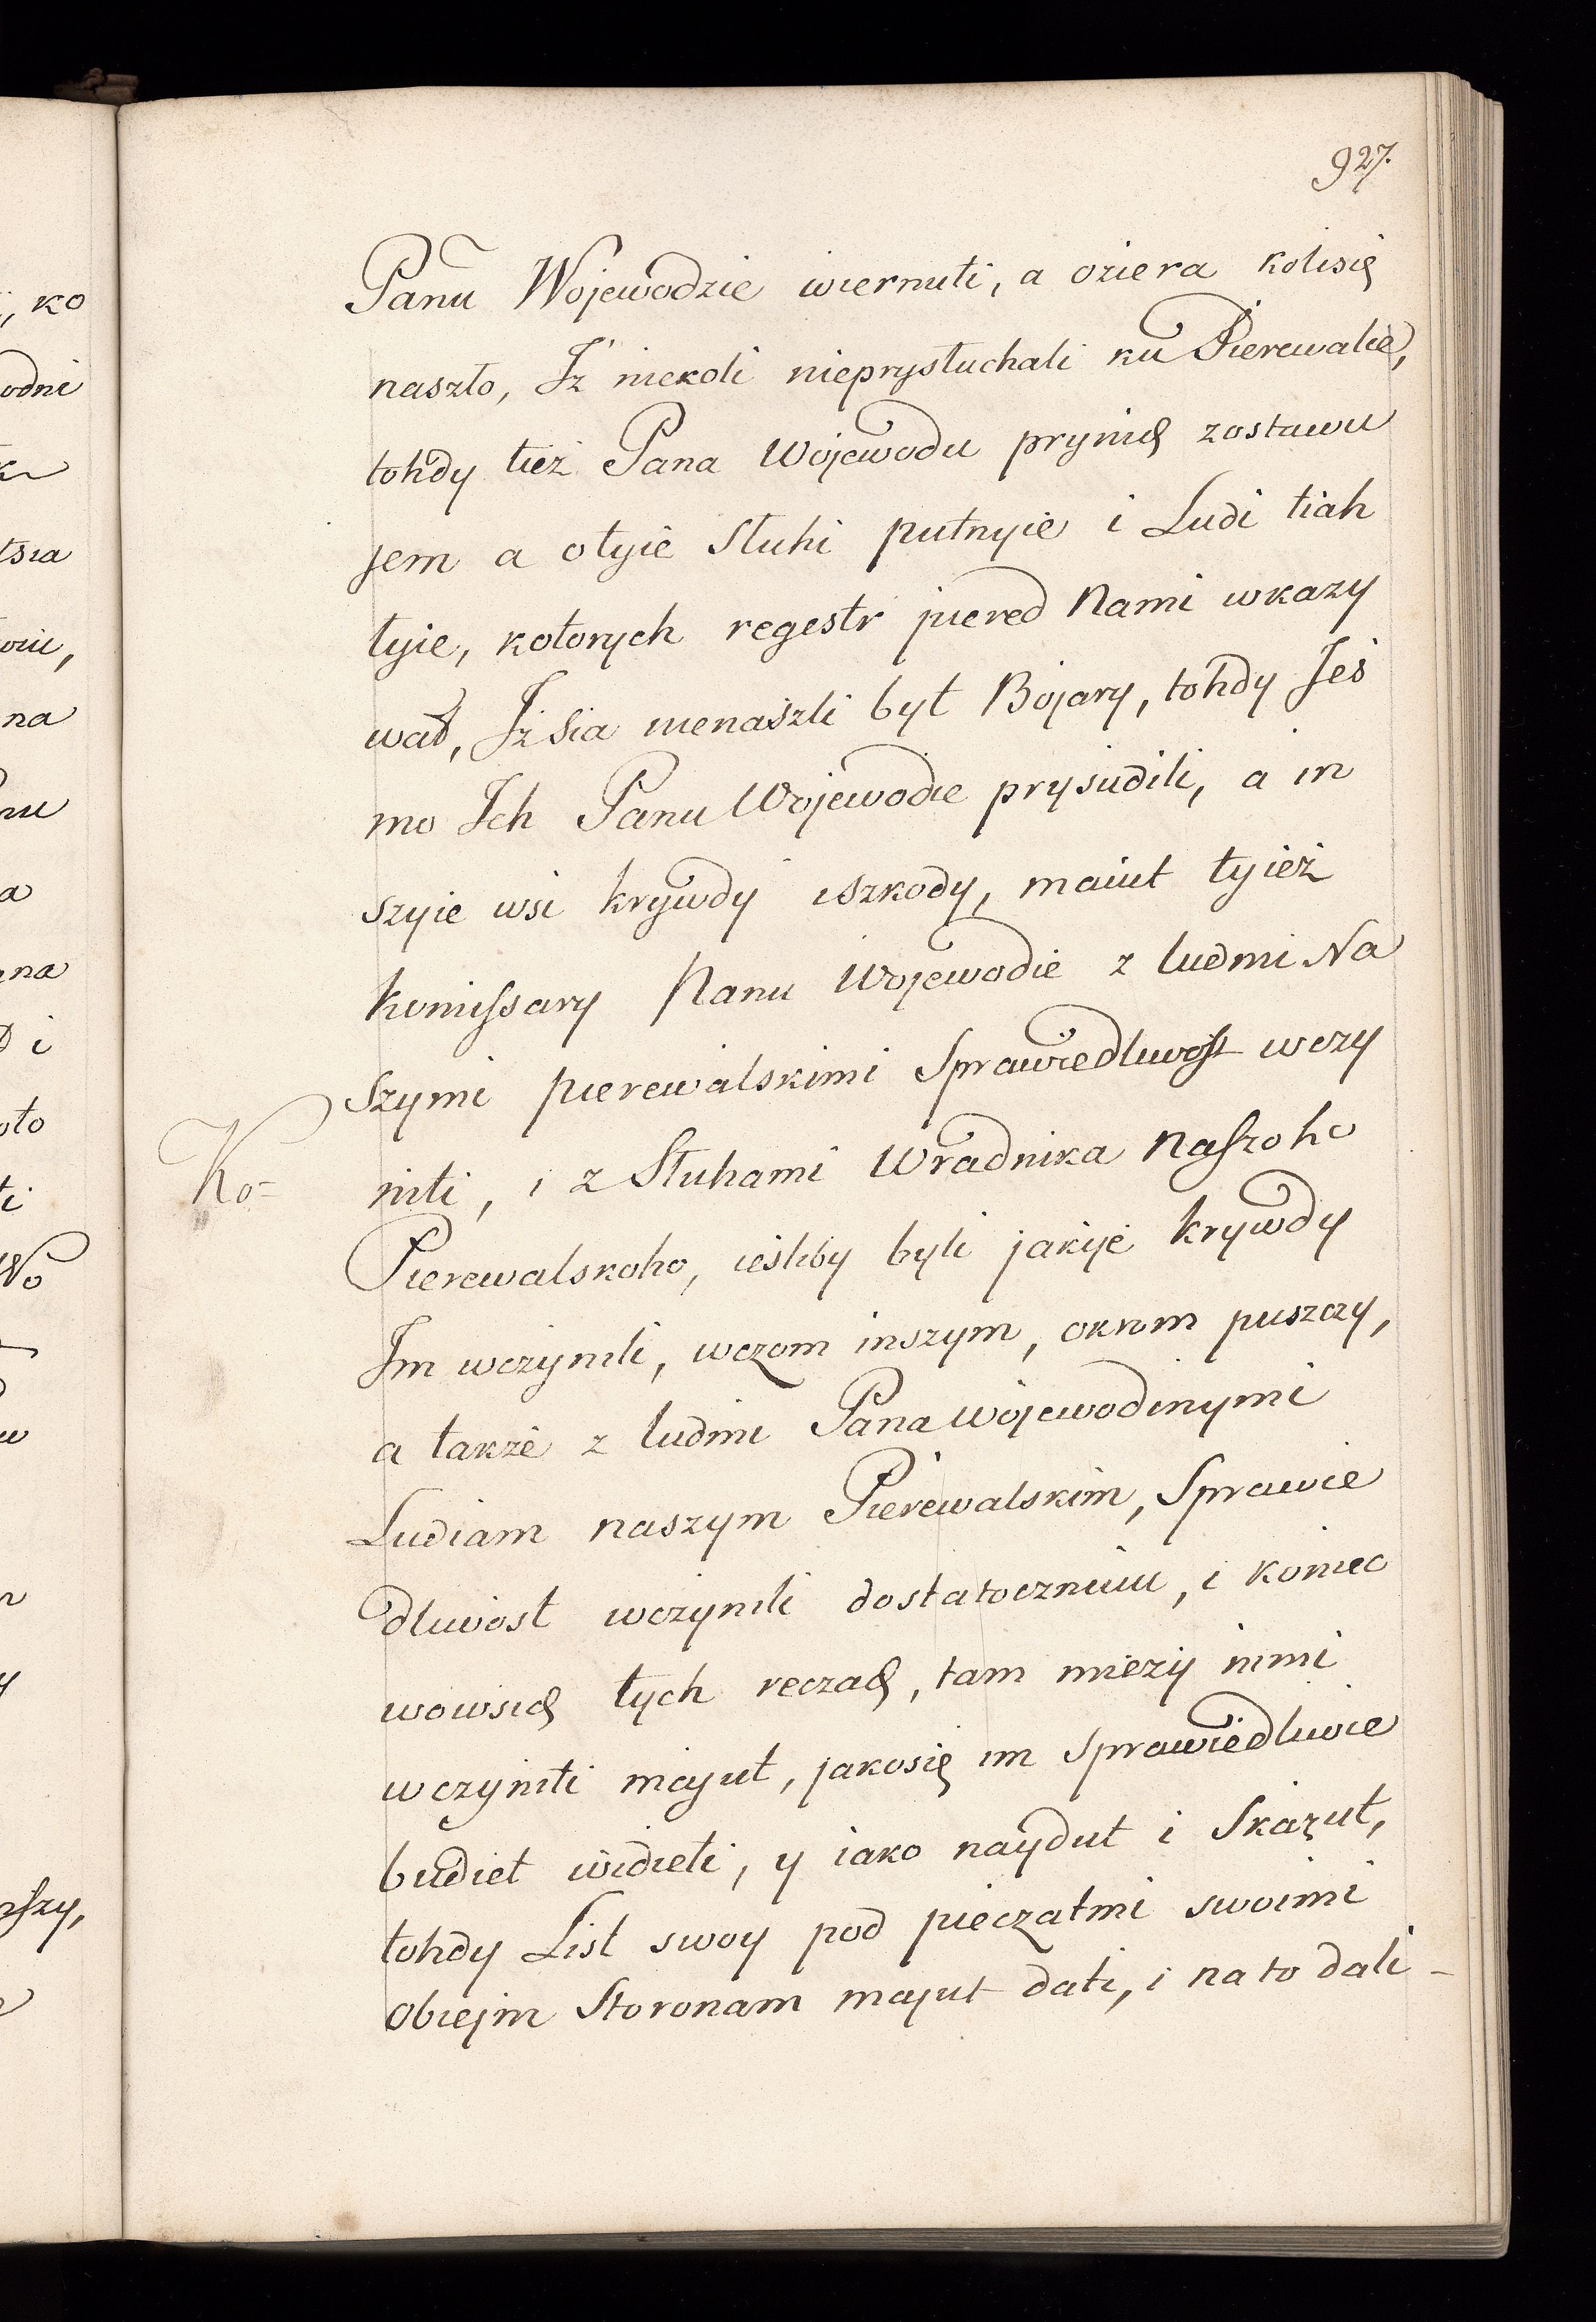 927.
Panu Wojewodzie wiernuti, a oziera kolisię
naszło, Iż niekoli nieprysłuchali ku Pierewalie,
tohdy tież Pana Wojewodu pryniś zostawu
jem a otyie Słuhi putnyie i Ludi tiah
łyie, kotorych regestr piered Nami wkazy
wał, Iż sia nienaszli był Bojary, tohdy Jes
mo Ich Panu Wojewodie prysudili, a in
szyie wsi krywdy i szkody, maiut tyież
komissary Panu Wojewodie z ludmi Na
szymi pierewalskimi Sprawiedliwost wczy
niti, i z Słuhami Wradnika Naszoho
Pierewalskoho, ieśliby byli jakije krywdy
Im wczynili, wczom inszym, okrom puszczy,
a takżė z ludmi Pana Wojewodinymi
Ludiam naszym Pierewalskim, Sprawie
dliwost wczynili dostatoczniuiu, i koniec
wowsiś tych reczaś, tam mieży nimi
wczyniti majut, jakosię im sprawiedliwie
budiet widieti, y iako naydut i Skażut,
tohdy List swoy pod pieczatmi swoimi
Obiejm Storonam majut dati, i na to dali -
Ko=
ko
odni
tsia
na
nu
a
na
i
oto
ti
Wo
w
y
ſzy,